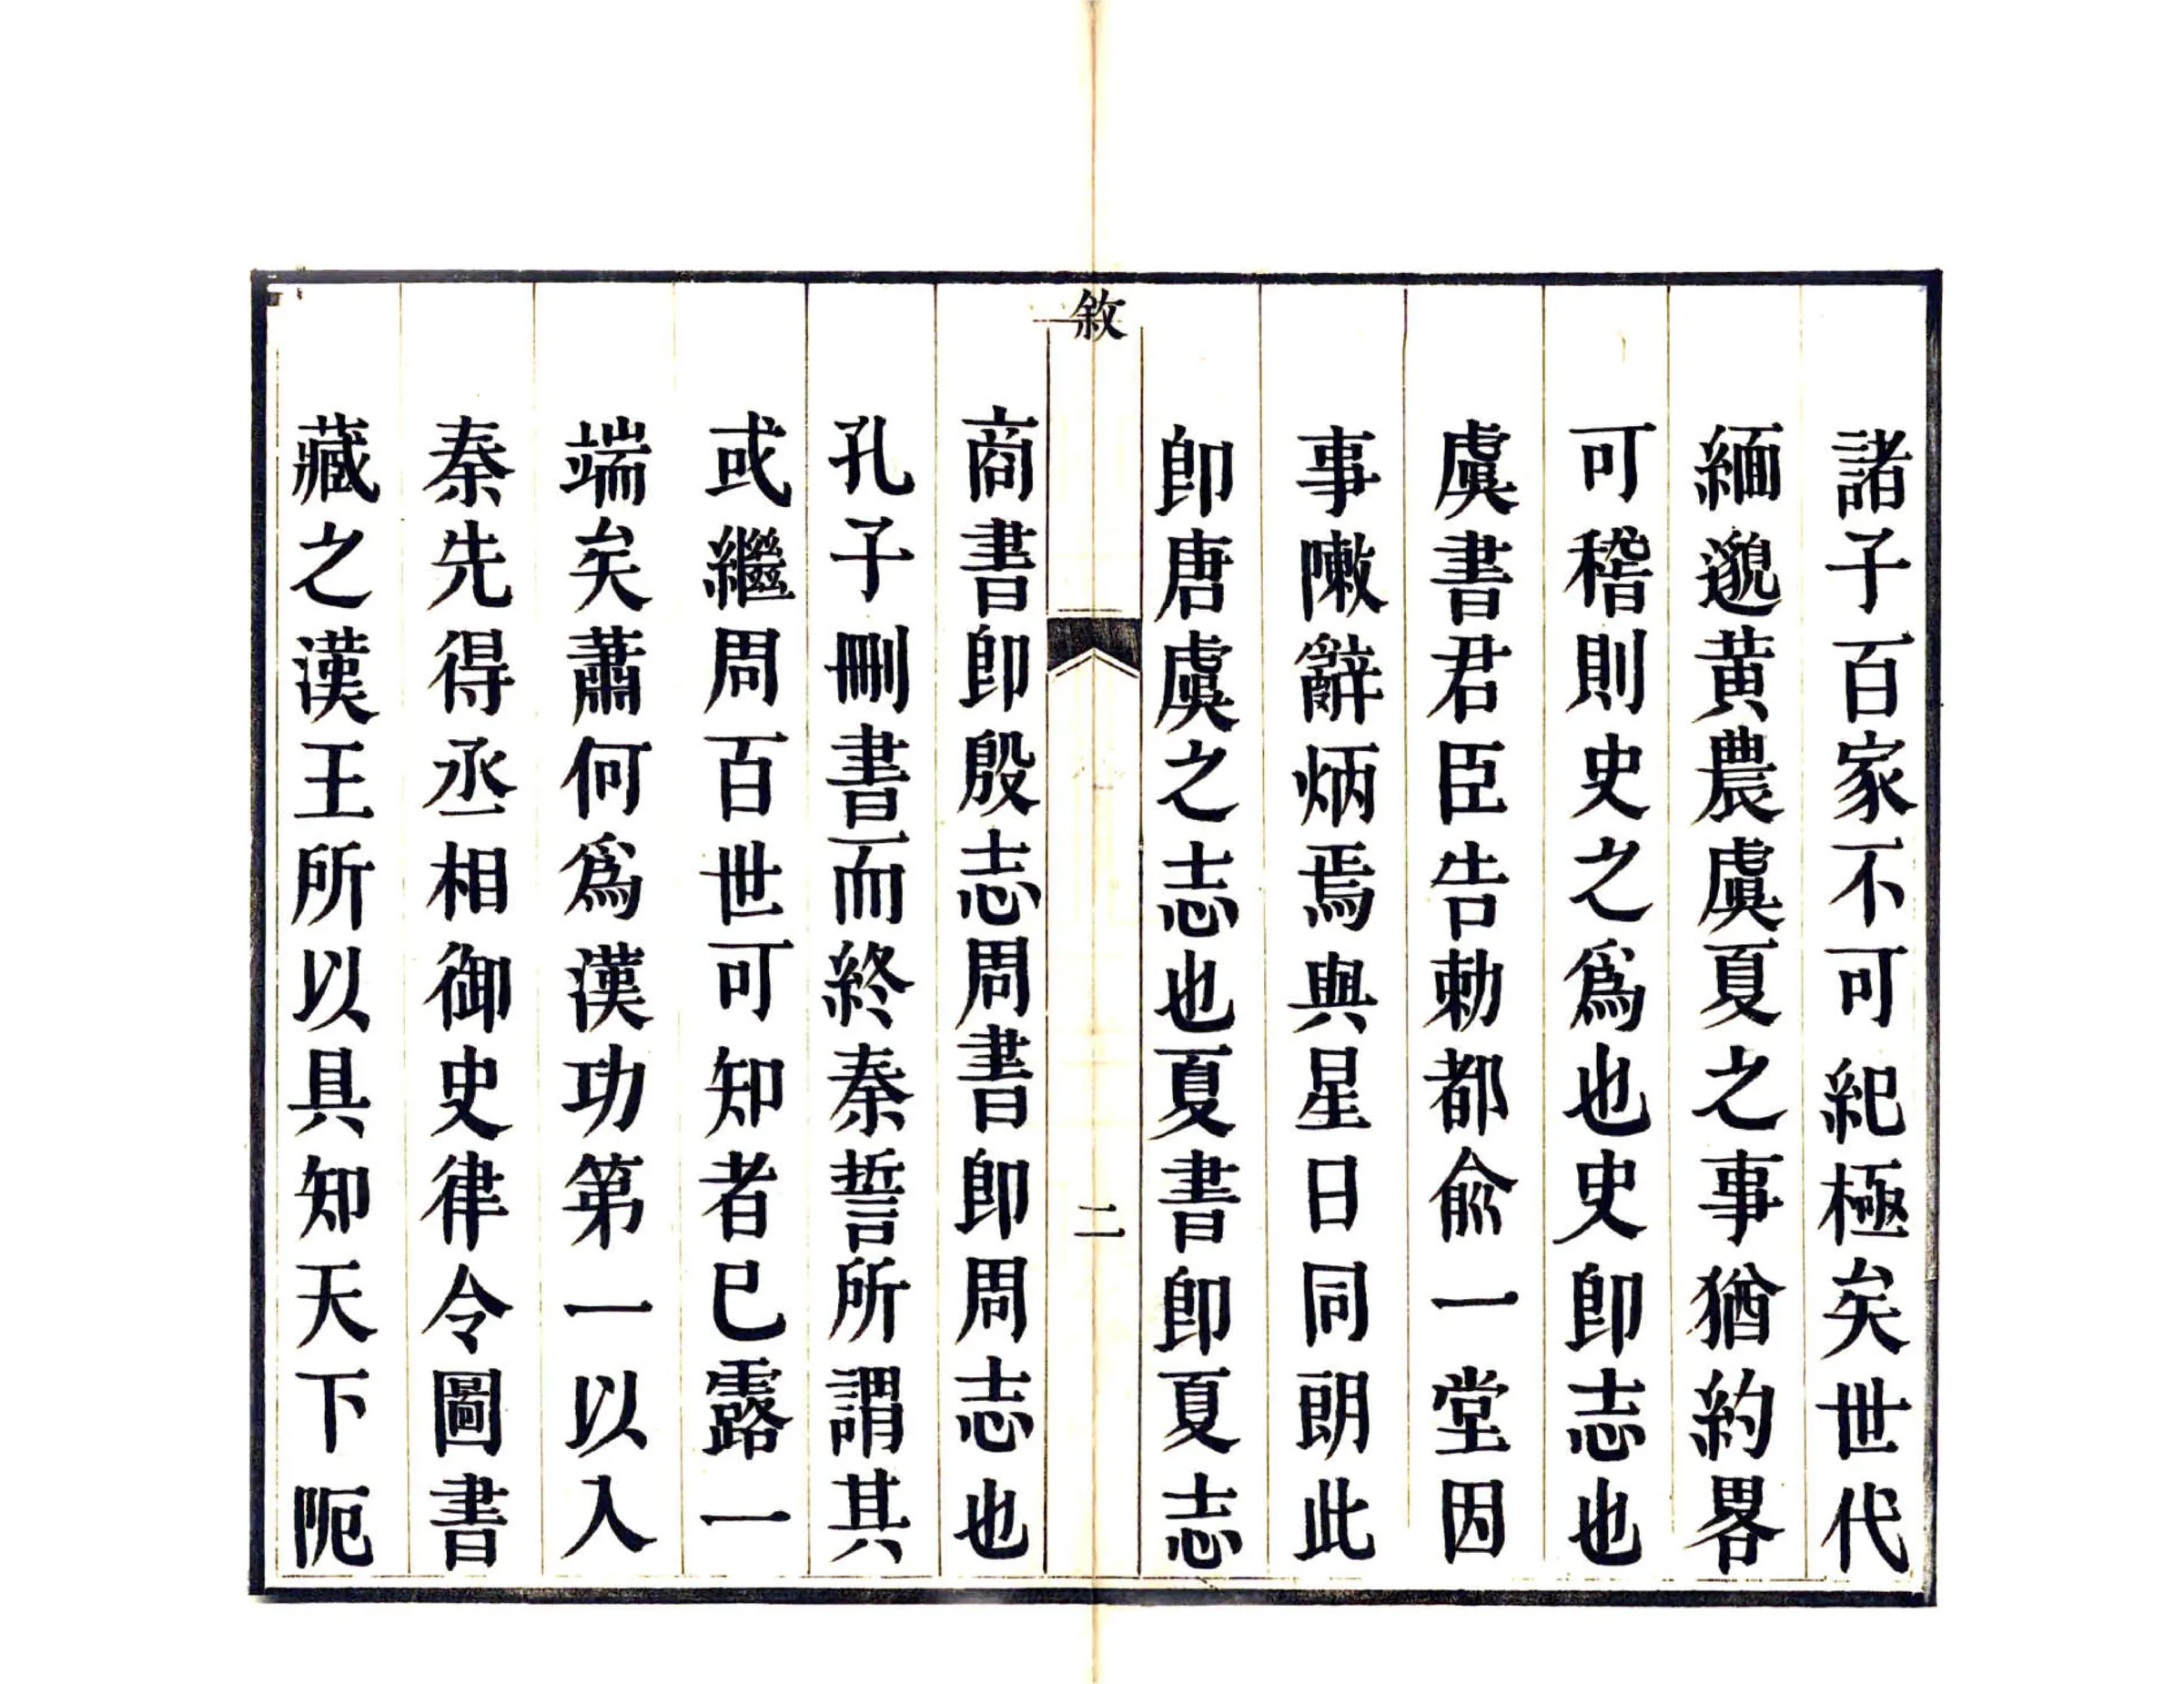 諸子百家不可紀極矣世代
緬邈黄農虞夏之事猶約畧
可稽則史之爲也史即志也
虞書君臣告勅都兪一堂因
事敶辭炳焉與星日同朗此
即唐虞之志也夏書即夏志
敘
二
商書即殷志周書即周志也
孔子刪書而終秦誓所謂其
或繼周百世可知者已露一
端矣蕭何爲漢功第一以入
秦先得丞相御史律令圖書
藏之漢王所以具知天下阨